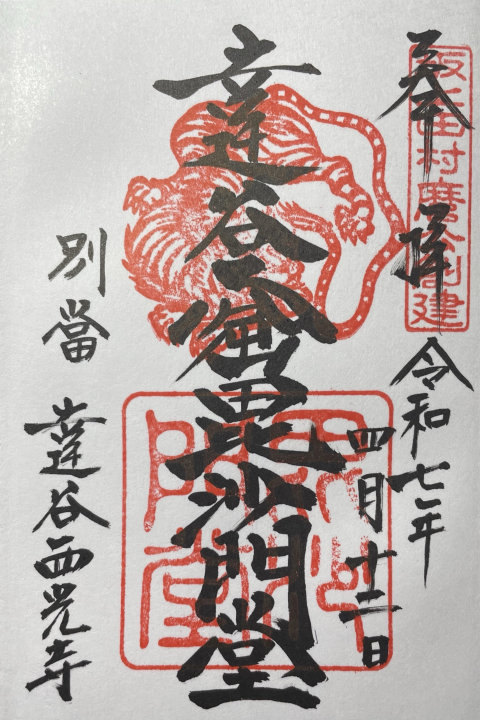 坂上田村麿公創建
奉拝
令和七年
四月十二日
達谷窟毘沙門堂
毘沙
門堂
別當
達谷西光寺